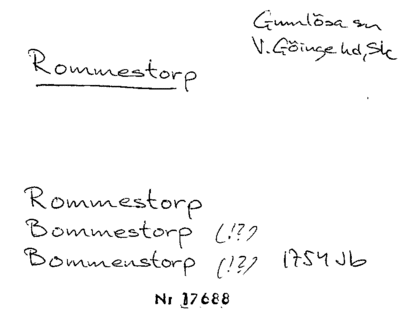 Gumlösa sn
V. Göinge hd, Sk
Rommestorp
Rommestorp
Bommestorp (!?)
Bommenstorp (!?) 1754 Jb
Nr 17688